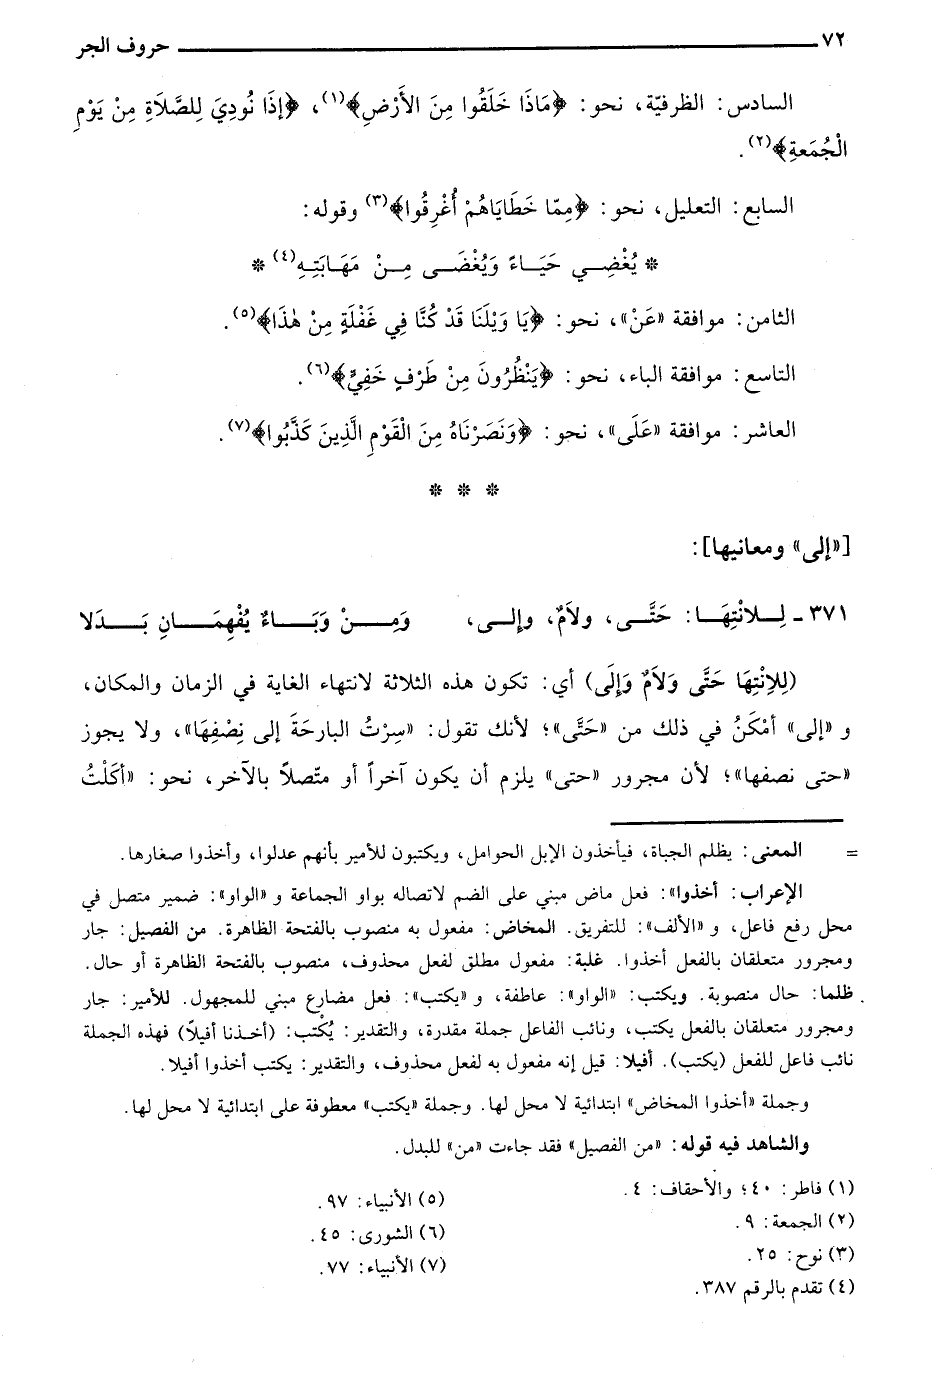 ٧٢ حروف الجر
السادس: الظرفيّة، نحو: ﴿مَاذَا خَلَقُوا مِنَ الأَرْضِ﴾(١)، ﴿إذَا نُودِيَ لِلصَّلَاةِ مِنْ يَوْمِ
الْجُمَعةِ﴾(٢).
السابع: التعليل، نحو: ﴿مِمّا خَطَايَاهُمْ أُغْرِقُوا﴾(٣) وقوله:
* يُغْضِي حَيَاءً وَيُغْضَى مِنْ مَهَابَتِهِ(٤) *
الثامن: موافقة «عَنْ»، نحو: ﴿يَا وَيْلَنَا قَدْ كُنَّا فِي غَفْلَةٍ مِنْ هٰذَا﴾(٥).
التاسع: موافقة الباء، نحو: ﴿يَنْظُرُونَ مِنْ طَرْفٍ خَفِيٍّ﴾(٦).
العاشر: موافقة «عَلَى»، نحو: ﴿وَنَصَرْنَاهُ مِنَ الْقَوْمِ الَّذِينَ كَذَّبُوا﴾(٧).
* * *
[«إلى» ومعانيها]:
٣٧١ ـ لِلانْتِهَا: حَتَّى، ولاَمٌ، وإلى، وَمِنْ وَبَاءٌ يُفْهِمَانِ بَدَلا
(لِلاِنْتِهَا حَتَّى وَلاَمٌ وَإِلَى) أي: تكون هذه الثلاثة لانتهاء الغاية في الزمان والمكان،
و «إلى» أمْكَنُ في ذلك من «حَتَّى»؛ لأنك تقول: «سِرْتُ البارحَةَ إلى نِصْفِهَا»، ولا يجوز
«حتى نصفها»؛ لأن مجرور «حتى» يلزم أن يكون آخراً أو متّصلاً بالآخر، نحو: «أكَلْتُ
= المعنى: يظلم الجباة، فيأخذون الإبل الحوامل، ويكتبون للأمير بأنهم عدلوا، وأخذوا صغارها.
الإعراب: أخذوا»: فعل ماض مبني على الضم لاتصاله بواو الجماعة و «الواو»: ضمير متصل في
محل رفع فاعل، و «الألف»: للتفريق. المخاض: مفعول به منصوب بالفتحة الظاهرة. من الفصيل: جار
ومجرور متعلقان بالفعل أخذوا. غلبة: مفعول مطلق لفعل محذوف، منصوب بالفتحة الظاهرة أو حال.
ظلما: حال منصوبة. ويكتب: «الواو»: عاطفة، و «يكتب»: فعل مضارع مبني للمجهول. للأمير: جار
ومجرور متعلقان بالفعل يكتب، ونائب الفاعل جملة مقدرة، والتقدير: يُكْتب: (أخذنا أفيلاً) فهذه الجملة
نائب فاعل للفعل (يكتب). أفيلا: قيل إنه مفعول به لفعل محذوف، والتقدير: يكتب أخذوا أفيلا.
وجملة «أخذوا المخاض» ابتدائية لا محل لها. وجملة «يكتب» معطوفة على ابتدائية لا محل لها.
والشاهد فيه قوله: «من الفصيل» فقد جاءت «من» للبدل.
(١) فاطر: ٤٠؛ والأحقاف: ٤.
(٢) الجمعة: ٩.
(٣) نوح: ٢٥.
(٤) تقدم بالرقم ٣٨٧.
(٥) الأنبياء: ٩٧.
(٦) الشورى: ٤٥.
(٧) الأنبياء: ٧٧.